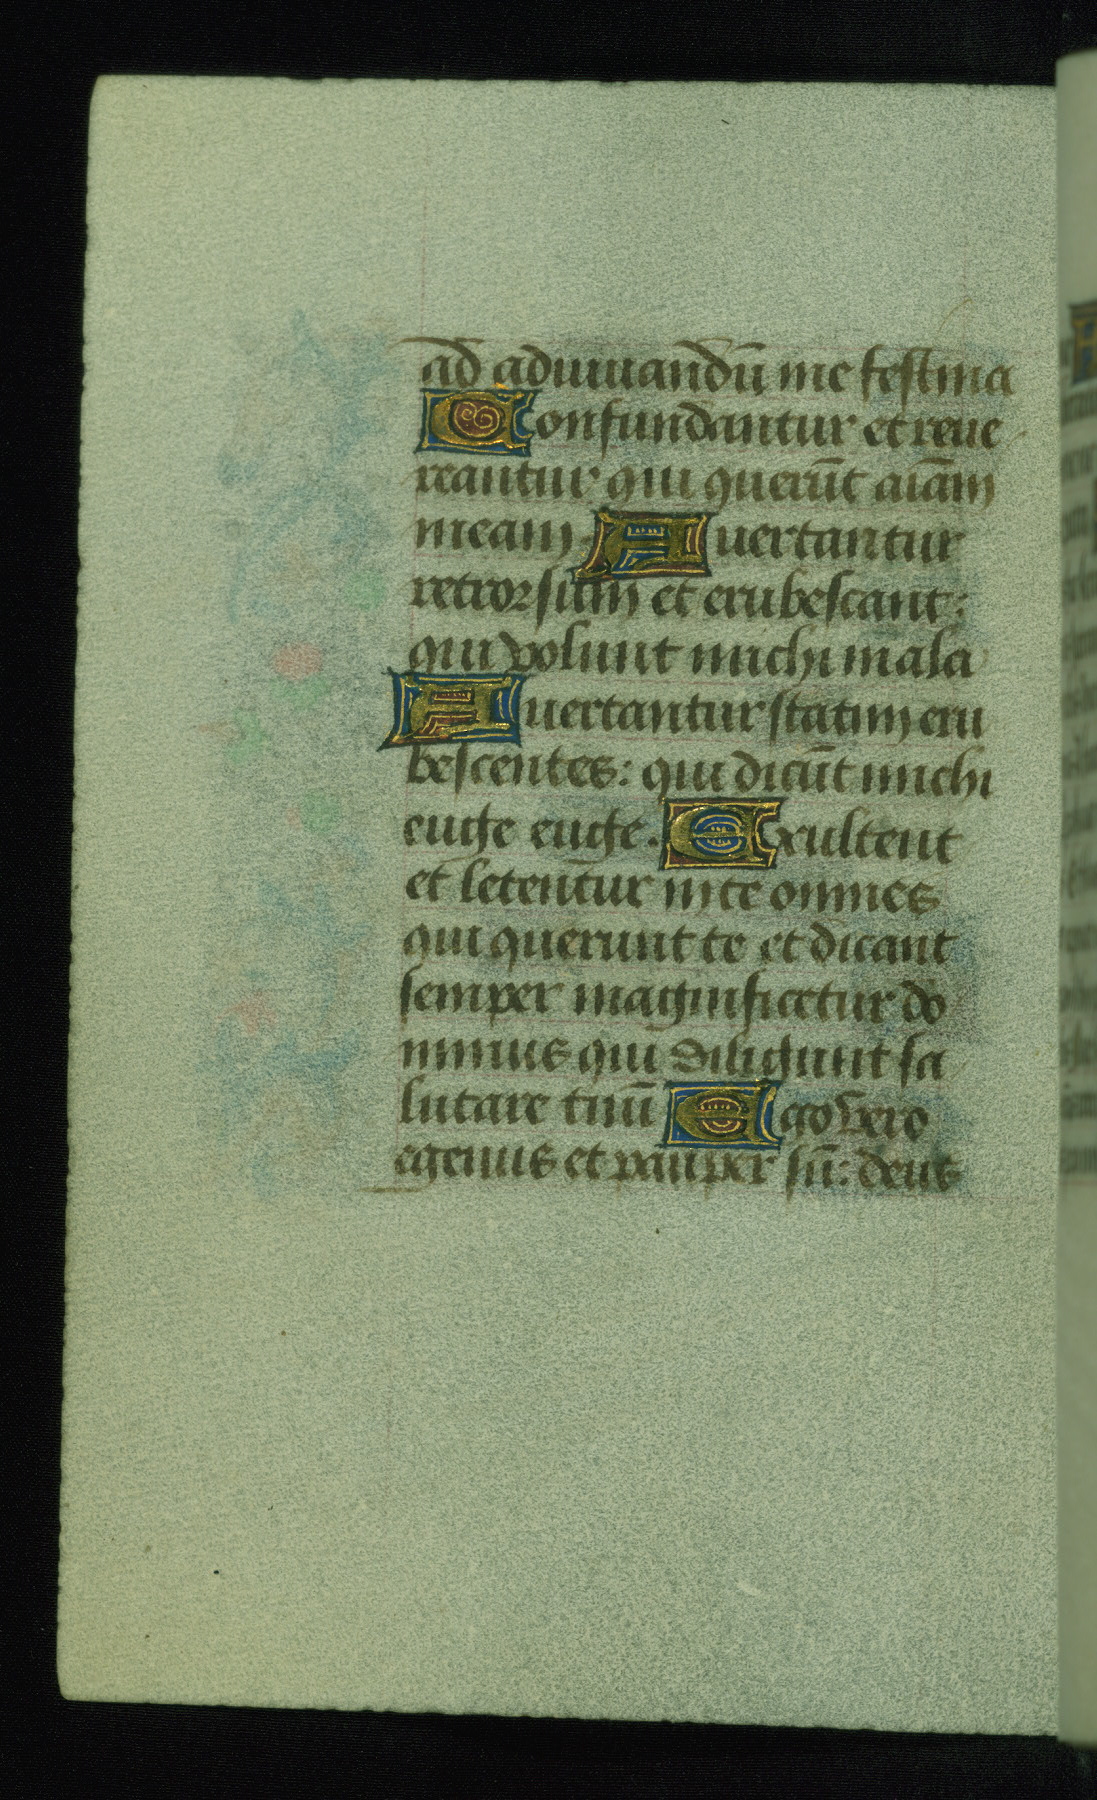 ad adiuuandū me festina
Confundantur et reue
reantur qui querūt aīam
meam. Auertantur
retrorsum et erubescant:
qui volunt michi mala
Auertantur statim eru
bescentes: qui dicūt michi
euge euge. Exultent
et letentur in te omnes
qui querunt te et dicant
semper magnificetur do
minus qui diligunt sa
lutare tuū Ego vero
egenus et pauper sū: deus